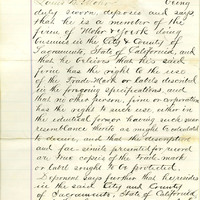 Louis P. Mohr being
duly sworn deposes and says
that he is a member of the
firm of Mohr & Yoerk doing
business in the City & County of
Sacramento, State of California, and
that he believes that his said
firm has the right to the use
of the Trade Mark or labels described
in the forgoing specifications, and
that no other person, firm or corporation
has the right to such use, either in
the identical form or having such near
resemblance thereto as might be calculated
to deceive, and that the description
and fac-simile presented for record
are true copies of the Trade-mark
or label sought to be protected.
Deponent Says further that he resides
in the said City and County
of Sacramento, State of California